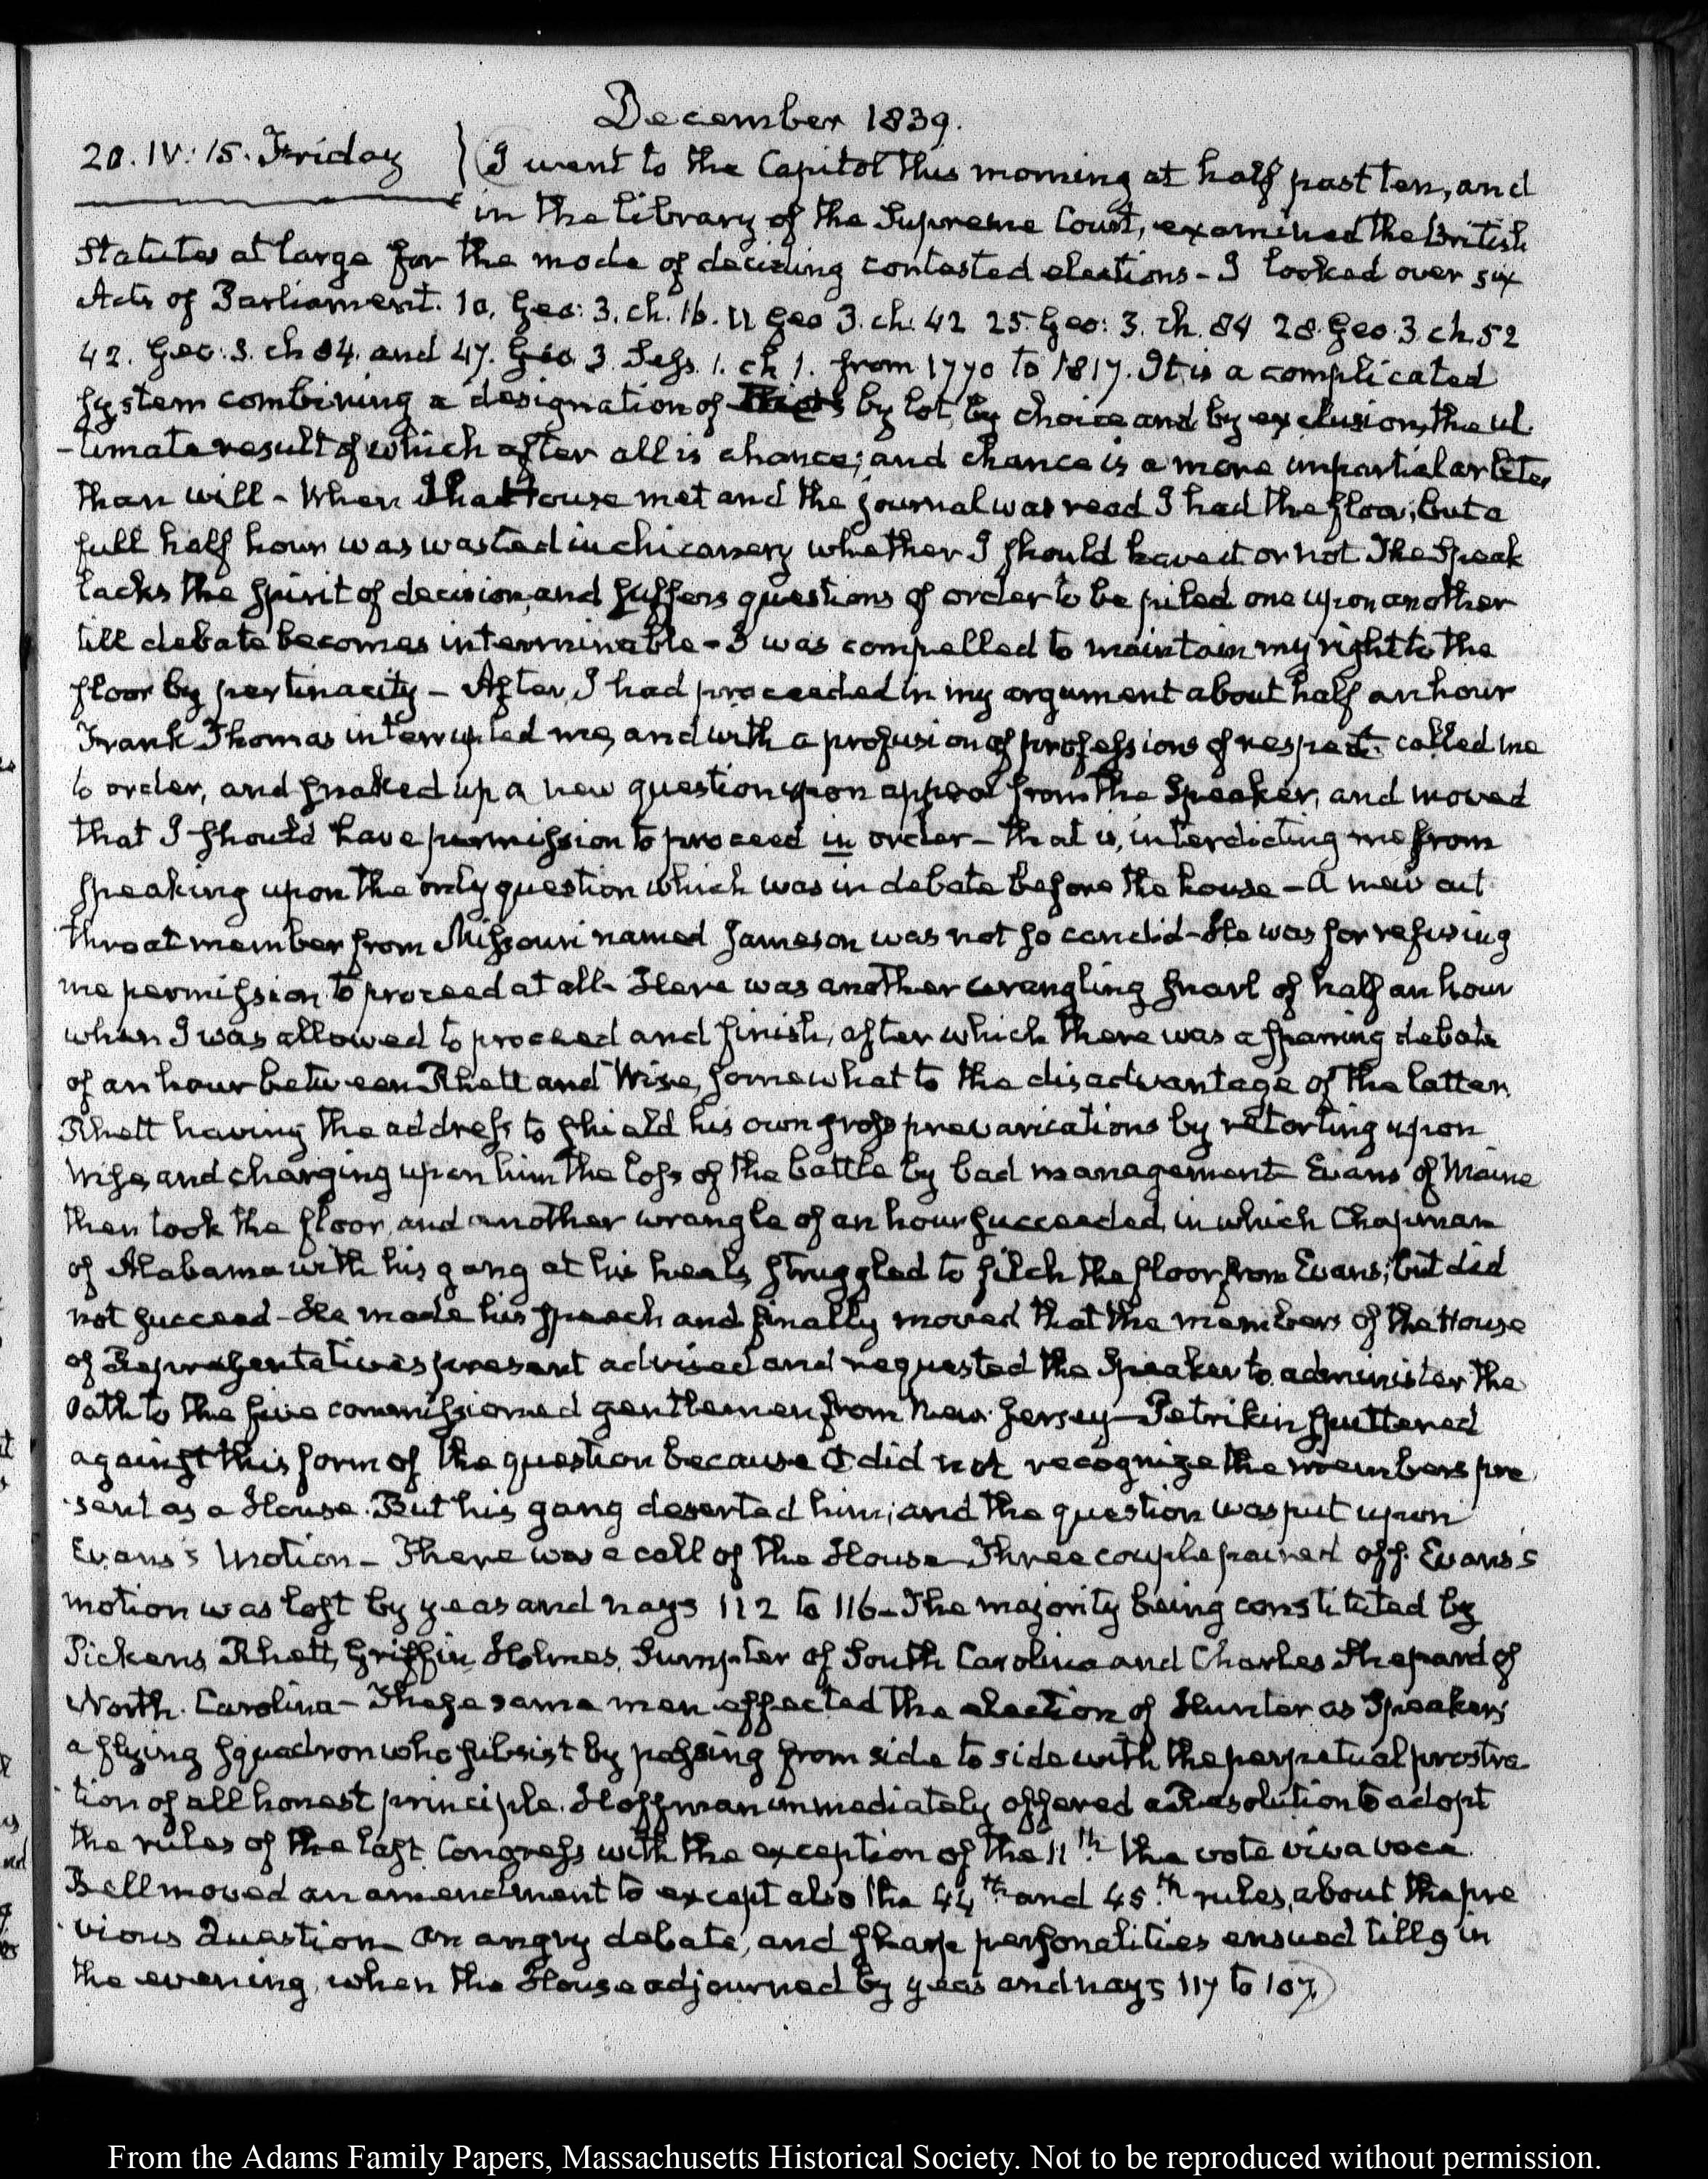 December 1839.
20. IV: 15. Friday } I went to the Capitol this morning at half past ten, and
in the library of the Supreme Court, examined the British
Statutes at large for the mode of deciding contested elections - I looked over six
Acts of Parliament. 10. Geo: 3. ch. 16. 11 Geo 3. ch. 42 25. Geo: 3. ch. 84 28. Geo 3. ch. 52
42. Geo: 3. ch 84. and 47. Geo 3. Sess. 1. ch 1. from 1770 to 1817. It is a complicated
system combining a designation of by lot, by choice and by exclusion, the ul-
-timate result of which after all is chance; and chance is a more impartial arbiter
than will - When the House met and the journal was read I had the floor; but a
full half hour was wasted in chicanery whether I should have it or not The Speak
lacks the spirit of decision, and suffers questions of order to be piled one upon another
till debate becomes interminable - I was compelled to maintain my right to the
floor by pertinacity - After I had proceeded in my argument about half an hour
Frank Thomas interrupted me, and with a profusion of professions of respect called me
to order, and snaked up a new question upon appeal from the Speaker, and moved
that I should have permission to proceed in order - that is, interdicting me from
speaking upon the only question which was in debate before the house - A new cut
throat member from Missouri named Jameson was not so candid - He was for refusing
me permission to proceed at all - Here was another wrangling snarl of half an hour
when I was allowed to proceed and finish, after which there was a sparring debate
of an hour between Rhett and Wise, somewhat to the disadvantage of the latter,
Rhett having the address to shield his own gross prevarications by retorting upon
Wise, and charging upon him the loss of the battle by bad management - Evans of Maine
then took the floor, and another wrangle of an hour succeeded, in which Chapman
of Alabama with his gang at his heels, struggled to filch the floor from Evans; but did
not succeed - He made his speech and finally moved that the members of the House
of Representatives present advised and requested the Speaker to administer the
oath to the five commissioned gentlemen from New Jersey - Petrikin sputtered
against this form of the question because it did not recognize the members pre
-sent as a House. But his gang deserted him; and the question was put upon
Evans's motion - There was a call of the House - Three couple paired off. Evans's
motion was lost by yeas and nays 112 to 116 - The majority being constituted by
Pickens, Rhett, Griffin, Holmes, Sumpter of South Carolina and Charles Shepard of
North Carolina - These same men effected the election of Hunter as Speaker;
a flying squadron who subsist by passing from side to side with the perpetual prostra-
-tion of all honest principle. Hoffman immediately offered a Resolution to adopt
the rules of the last Congress with the exception of the 11th. the vote viva voce.
Bell moved an amendment to except also the 44th and 45.th rules, about the pre
-vious Question - An angry debate, and sharp personalities ensued till 9 in
the evening, when the House adjourned by yeas and nays 117 to 107.
From the Adams Family Papers, Massachusetts Historical Society. Not to be reproduced without permission.